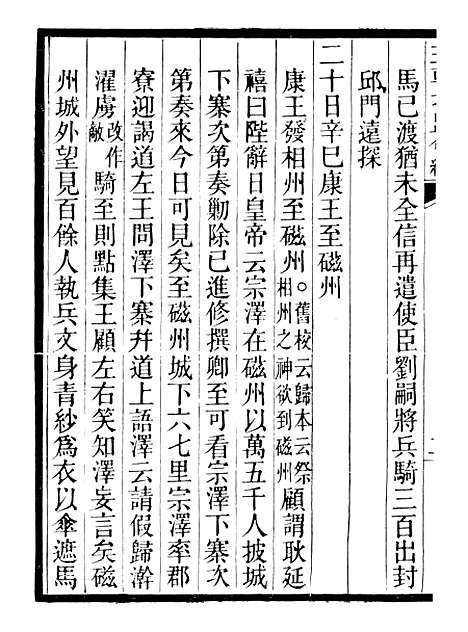 馬已渡猶未全信再遣使臣劉嗣將兵騎三百出封
邱門遠探
二十日辛巳康王至磁州
康王發相州至磁州○舊校云歸本云祭相州之神欲到磁州顧謂耿延
禧曰陛辭日皇帝云宗澤在磁州以萬五千人披城
下寨次第奏勦除已進修撰卿至可看宗澤下寨次
第奏來今日可見矣至磁州城下六七里宗澤率郡
寮迎謁道左王問澤下寨幷道上語澤云請假歸澣
濯虜改作敵騎至則點集王顧左右笑知澤妄言矣磁
州城外望見百餘人執兵文身青紗爲衣以傘遮馬